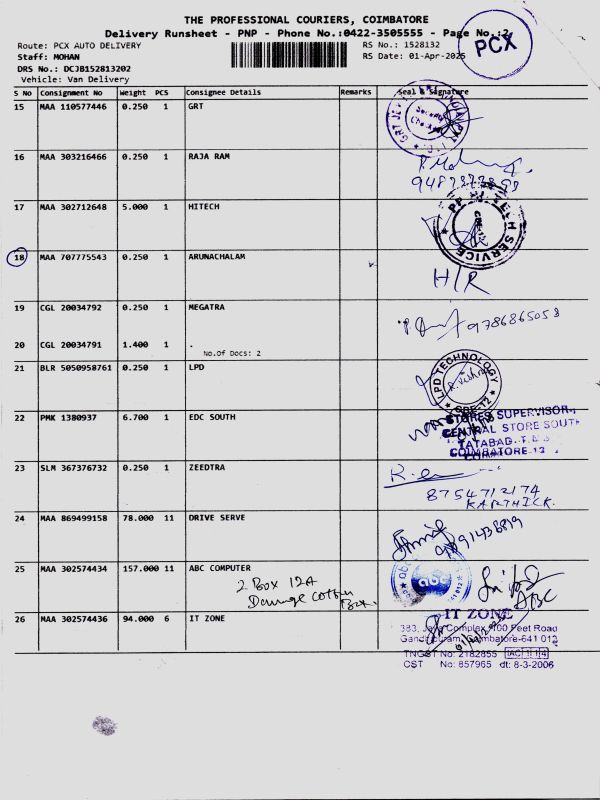 THE PROFESSIONAL COURIERS, COIMBATORE
Delivery Runsheet - PNP - Phone No.:0422-3505555 - Page No.:2
PCX
Route: PCX AUTO DELIVERY
RS No.: 1528132
Staff: MOHAN
RS Date: 01-Apr-2025
DRS No.: DCJB152813202
Vehicle: Van Delivery
S No Consignment No Weight PCS Consignee Details Remarks Seal & Signature
15 MAA 110577446 0.250 1 GRT
16 MAA 303216466 0.250 1 RAJA RAM
17 MAA 302712648 5.000 1 HITECH
18 MAA 707775543 0.250 1 ARUNACHALAM
H/R
19 CGL 20034792 0.250 1 MEGATRA
9786865058
20 CGL 20034791 1.400 1 .
No.Of Docs: 2
21 BLR 5050958761 0.250 1 LPD
LPD TECHNOLOGY
CBE-12
22 PMK 1380937 6.700 1 EDC SOUTH
STORES SUPERVISOR,
CENTRAL STORE SOUTH
TATABAD.
COIMBATORE-12
23 SLM 367376732 0.250 1 ZEEDTRA
8754712174
KARTHICK.
24 MAA 869499158 78.000 11 DRIVE SERVE
25 MAA 302574434 157.000 11 ABC COMPUTER
2 Box 12A
Damage Cotton
Box.
abc
ABC
26 MAA 302574436 94.000 6 IT ZONE
IT ZONE
383, Complex, 100 Feet Road
Gandhipuram, Coimbatore-641 012
TNGST No: 2182855
CST No: 857965 dt: 8-3-2006